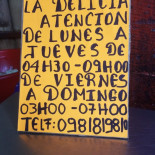 LA DELICIA
ATENCION
DE LUNES A
JUEVES DE
04H30-09H00
DE VIERNES
A DOMINGO
03H00-07H00
TELF:0981819810